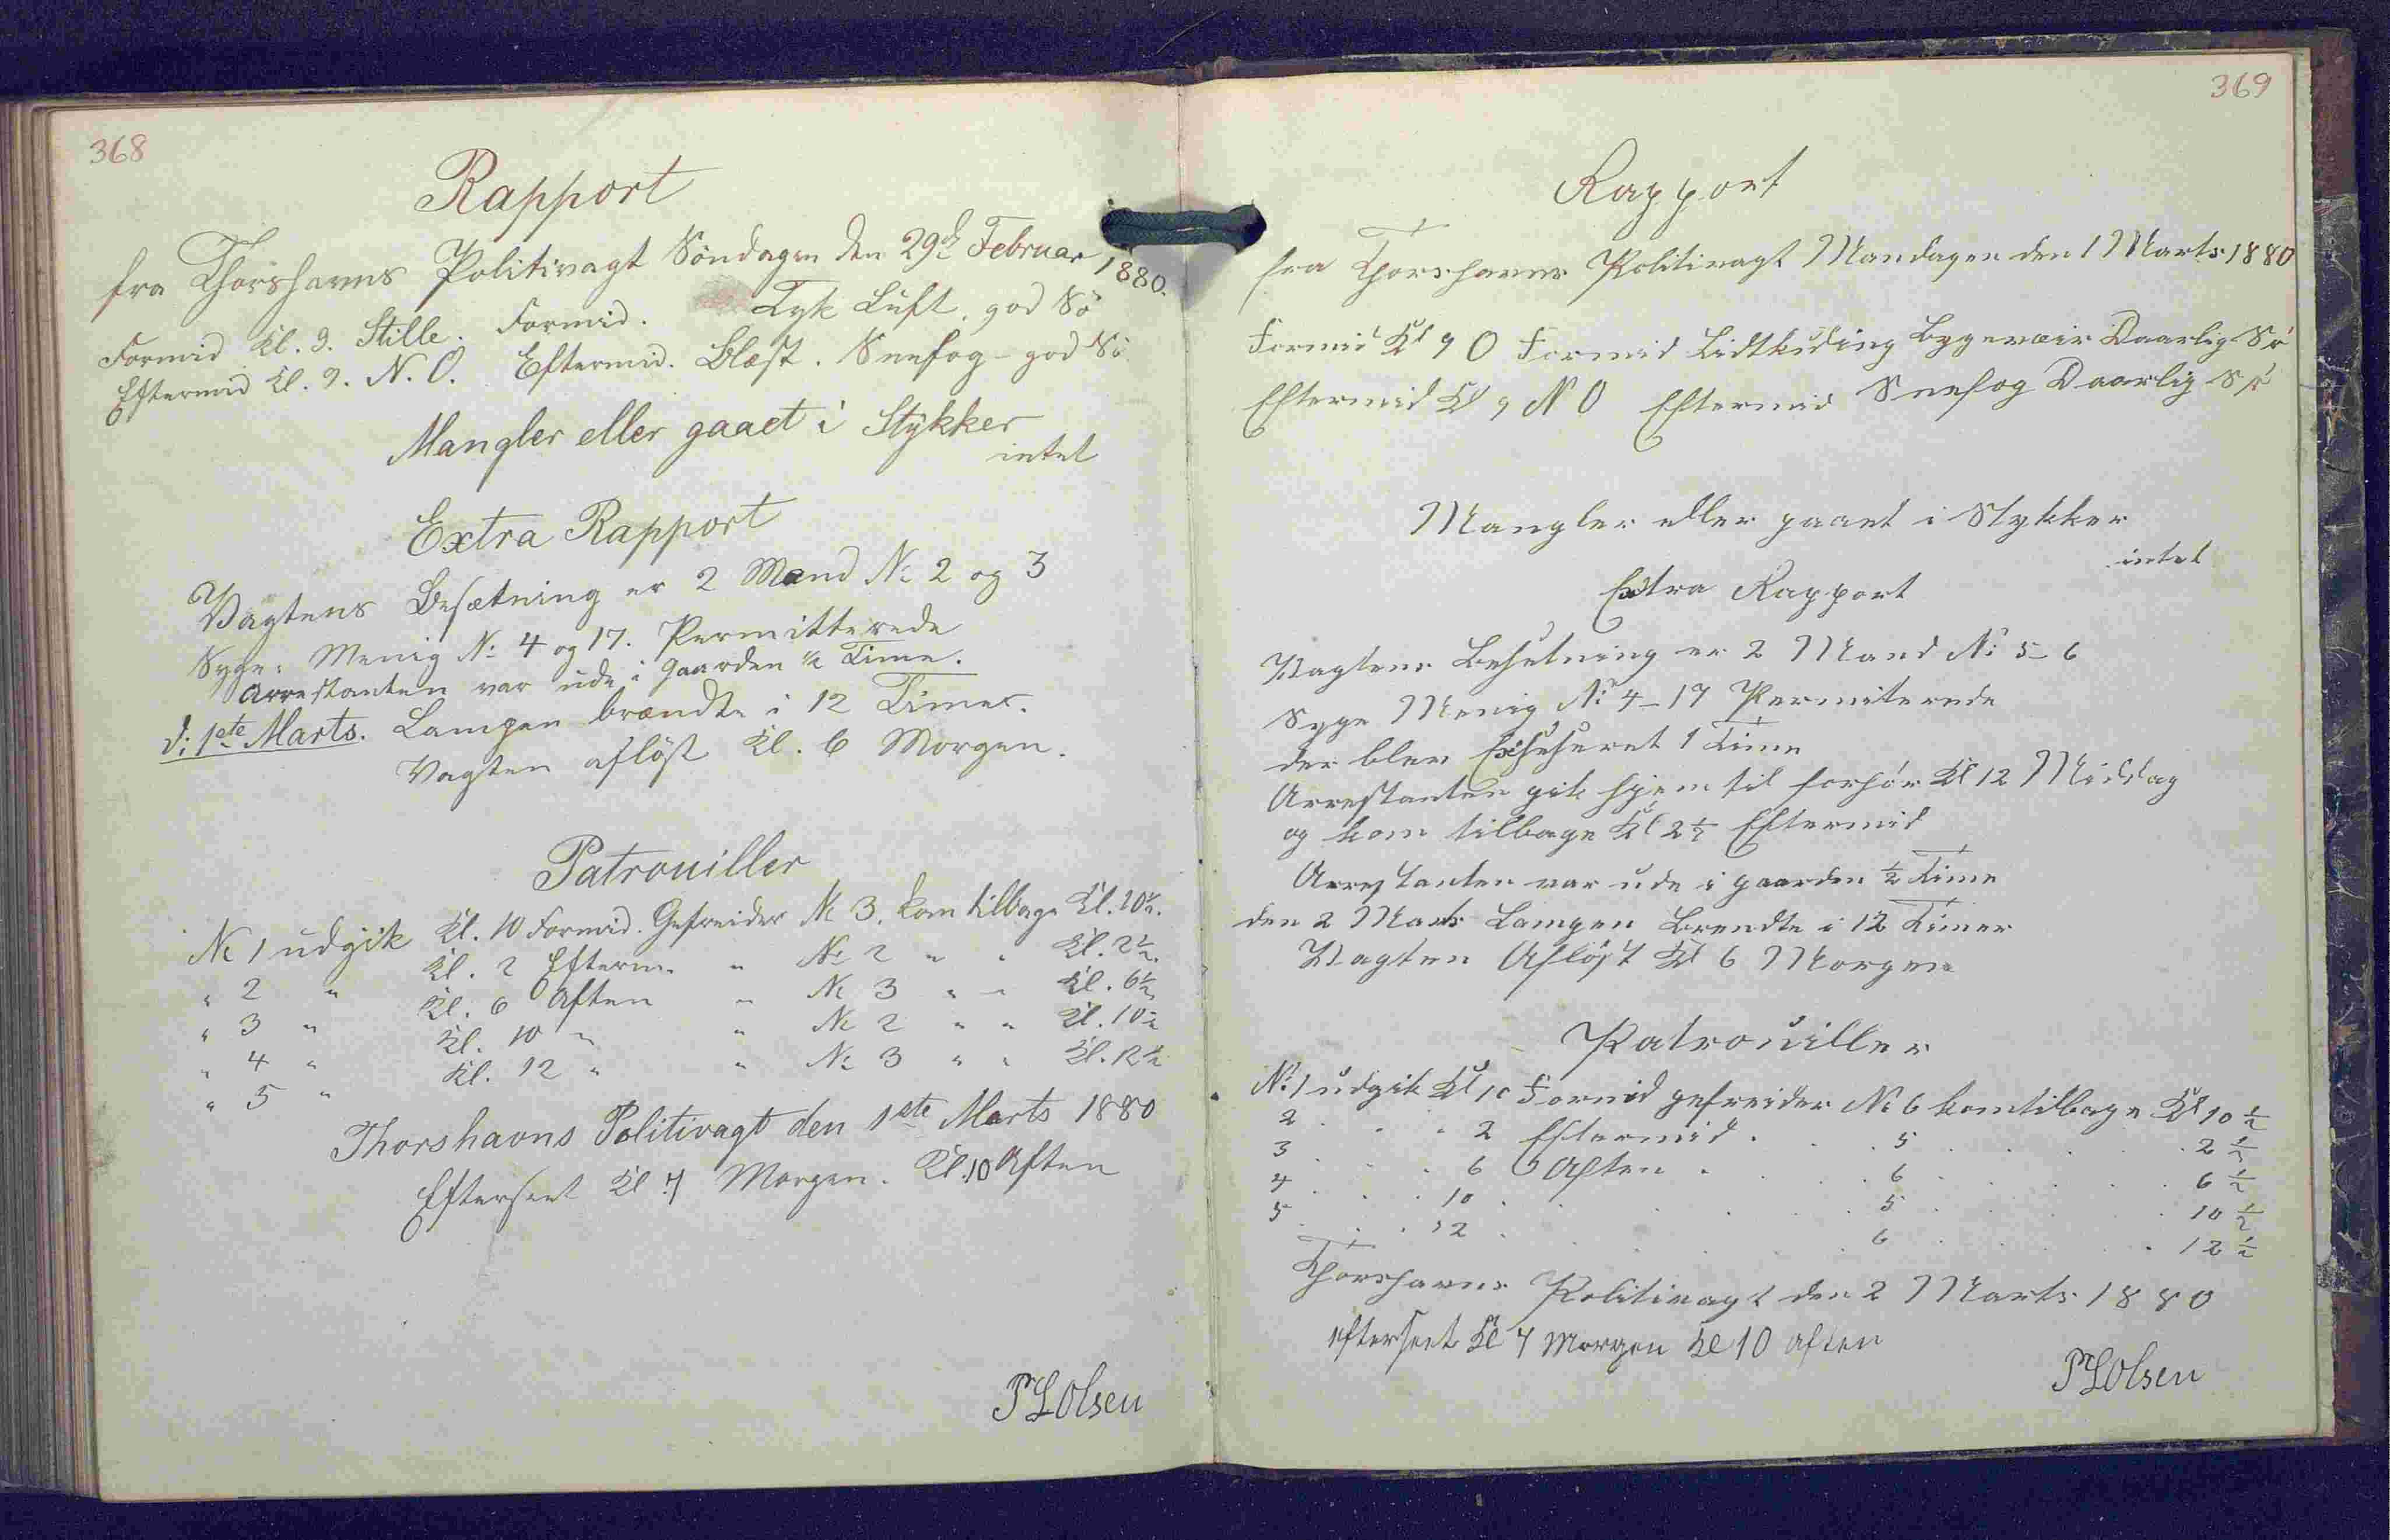 368
Rapport
fra Thorshavns Politivagt Söndagen den 29de Februar 1880.
Formid Kl. 9. Stille. Formid. Tyk Luft, god Sö
Eftermid Kl. 9. N. O. Eftermid. Blæst. Sneefog - god Sö
Mangler eller gaaet i Stykker
intet
Extra Rapport
Vagtens Besætning er 2 Mand No 2 og 3
Syge: Menig No 4 og 17. Permitterede
Arrestanten var ude i Gaarden 1/2 Time.
d: 1ste Marts. Lampen brændte i 12 Timer.
Vagten aflöst Kl. 6 Morgen.
Patrouiller
No 1 udgik Kl. 10 Formid. Gefreider No 3. kom tilbage Kl. 10 1/2.
" 2 " Kl. 2 Efterm. " No 2 " " Kl. 2 1/2.
" 3 " Kl. 6 Aften " No 3 " " Kl. 6 1/2
" 4 " Kl. 10 " " No 2 " " Kl. 10 1/2
" 5 " Kl. 12 " " No 3 " " Kl. 12 1/2
Thorshavns Politivagt den 1ste Marts 1880
Efterseet Kl 7 Morgen. Kl. 10 Aften
P L Olsen
369
Rapport
fra Thorshavns Politivagt Mandagen den 1 Marts 1880
Formid Kl 9 O Formid Bygeveir Daarlig Sö
Eftermid Kl 9 N O Eftermid Sneefog Daarlig Sö
Mangler eller gaaet i Stykker
intet
Extra Rapport
Vagtens Besetning er 2 Mand No 5 - 6
Syge Menig No 4 - 17 Permiterede
der blev 1 Time
Arrestanten gik hjem til forhör Kl 12 Middag
og kom tilbage Kl 2 1/2 Eftermid
Arrestanten var ude i gaarden 1/2 Time
den 2 Marts Lampen Brendte i 12 Timer
Vagten Aflöst Kl 6 Morgen
Patrouiller
No 1 udgik Kl 10 Formid gefreider No 6 kom tilbage Kl 10 1/2
2 . . . 2 Eftermid . . . 5 . . . 2 1/2
3 . . . 6 Aften . . . 6 . . . 6 1/2
4 . . . 10 . . . 5 . . . 10 1/2
5 . . . 12 . . . 6 . . . 12 1/2
Thorshavns Politivagt den 2 Marts 1880
efterseet Kl 7 Morgen Kl 10 aften
P L Olsen